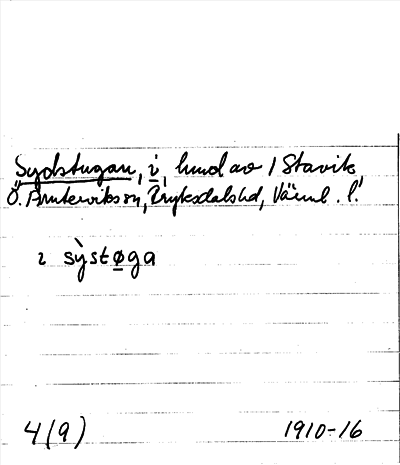 Sydstugan, i, hmd av 1 Stavik,
Ö. Ämtervik sn, Fryksdals hd, Värml. l.
i sỳstøga
4(9) 1910-16